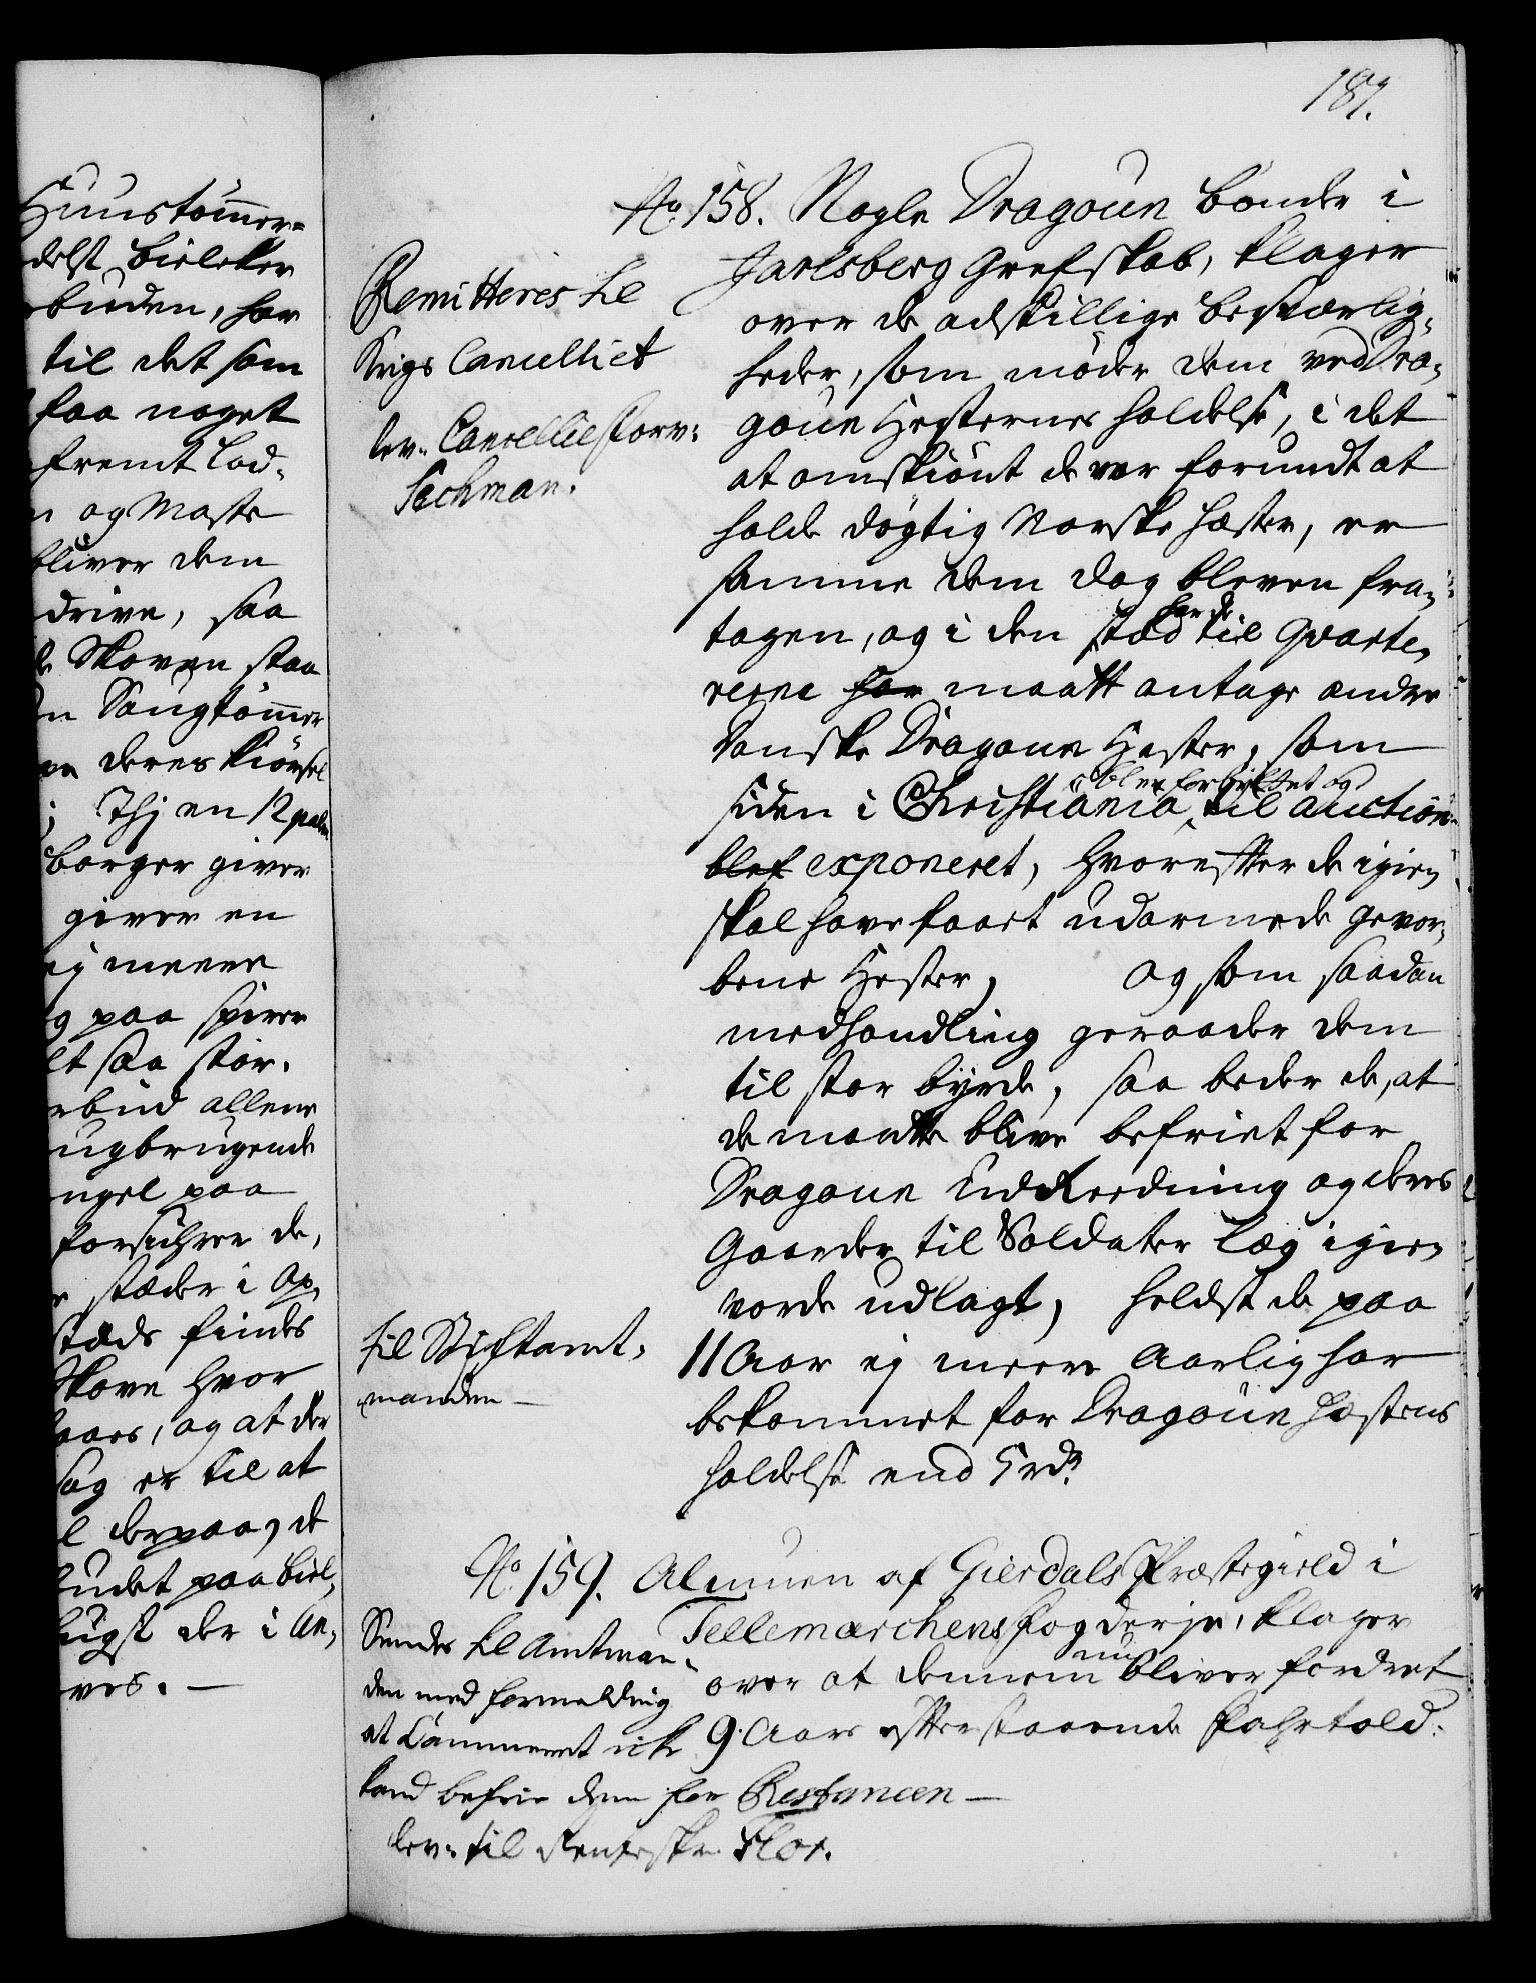 187.
Huustømmer=
delst bielcker
buden, har
til det som
faa noget
fremt Lad-
og Maste
bliver dem
drive, saa
Skoven staa
Saugtømmer
deres kiørsel
Thj en 12 palm
borger giver
giver en
ej meere
paa spirer
saa stor.
bud allene
ugbrugende
ngel paa
forsichrer de,
stæder i Op,
stæds findes
Skove hvor
aars, og at der
sag er til at
derpaa, de
udet paa biel,
der i An,
ves. —
No. 158. Nogle Dragoun bønder i
Jarlsberg Grefskab, klager
over de adskillige besværlig,
heder, som møder dem ved Dra,
goun Hesternes holdelse, i det
at omskiønt de var forundt at
holde døgtig Norske hæster, er
samme dem dog bleven fra,
tagen, og i den stæd har de til Qvarte,
rerne har maatt antage andre
danske Dragoun Hester, som
siden i Christiania blev forbyttet og til auction
blef exponeret, hvoreffter de igien
skal have faaet udarmede gevor,
bene Hester, og som saadan
medhandling geraader dem
til stor byrde, saa beder de, at
de maatte blive befriet for
Dragoun Udreedning og deres
Gaarder til Soldater læg igien
vorde udlagt, heldst de paa
11 Aar ej meere Aarlig har
bekommet for Dragoun hæstens
holdelse end 5 rdr.
Remitteres til
Krigs Cancelliet
lev. Cancellie forv:
Sechman.
til Stiftamt,
manden —
No. 159. Almuen af Gierdals Præstegield i
Tellemarchens fogderje, klager
over at dennem nu bliver fordret
9. Aars effterstaaende Kahrtold.
Sendes til Amtman,
den med formelding
at Cammeret icke
kand befrie dem for Restancen —
lev. til Renteskr. Flor.